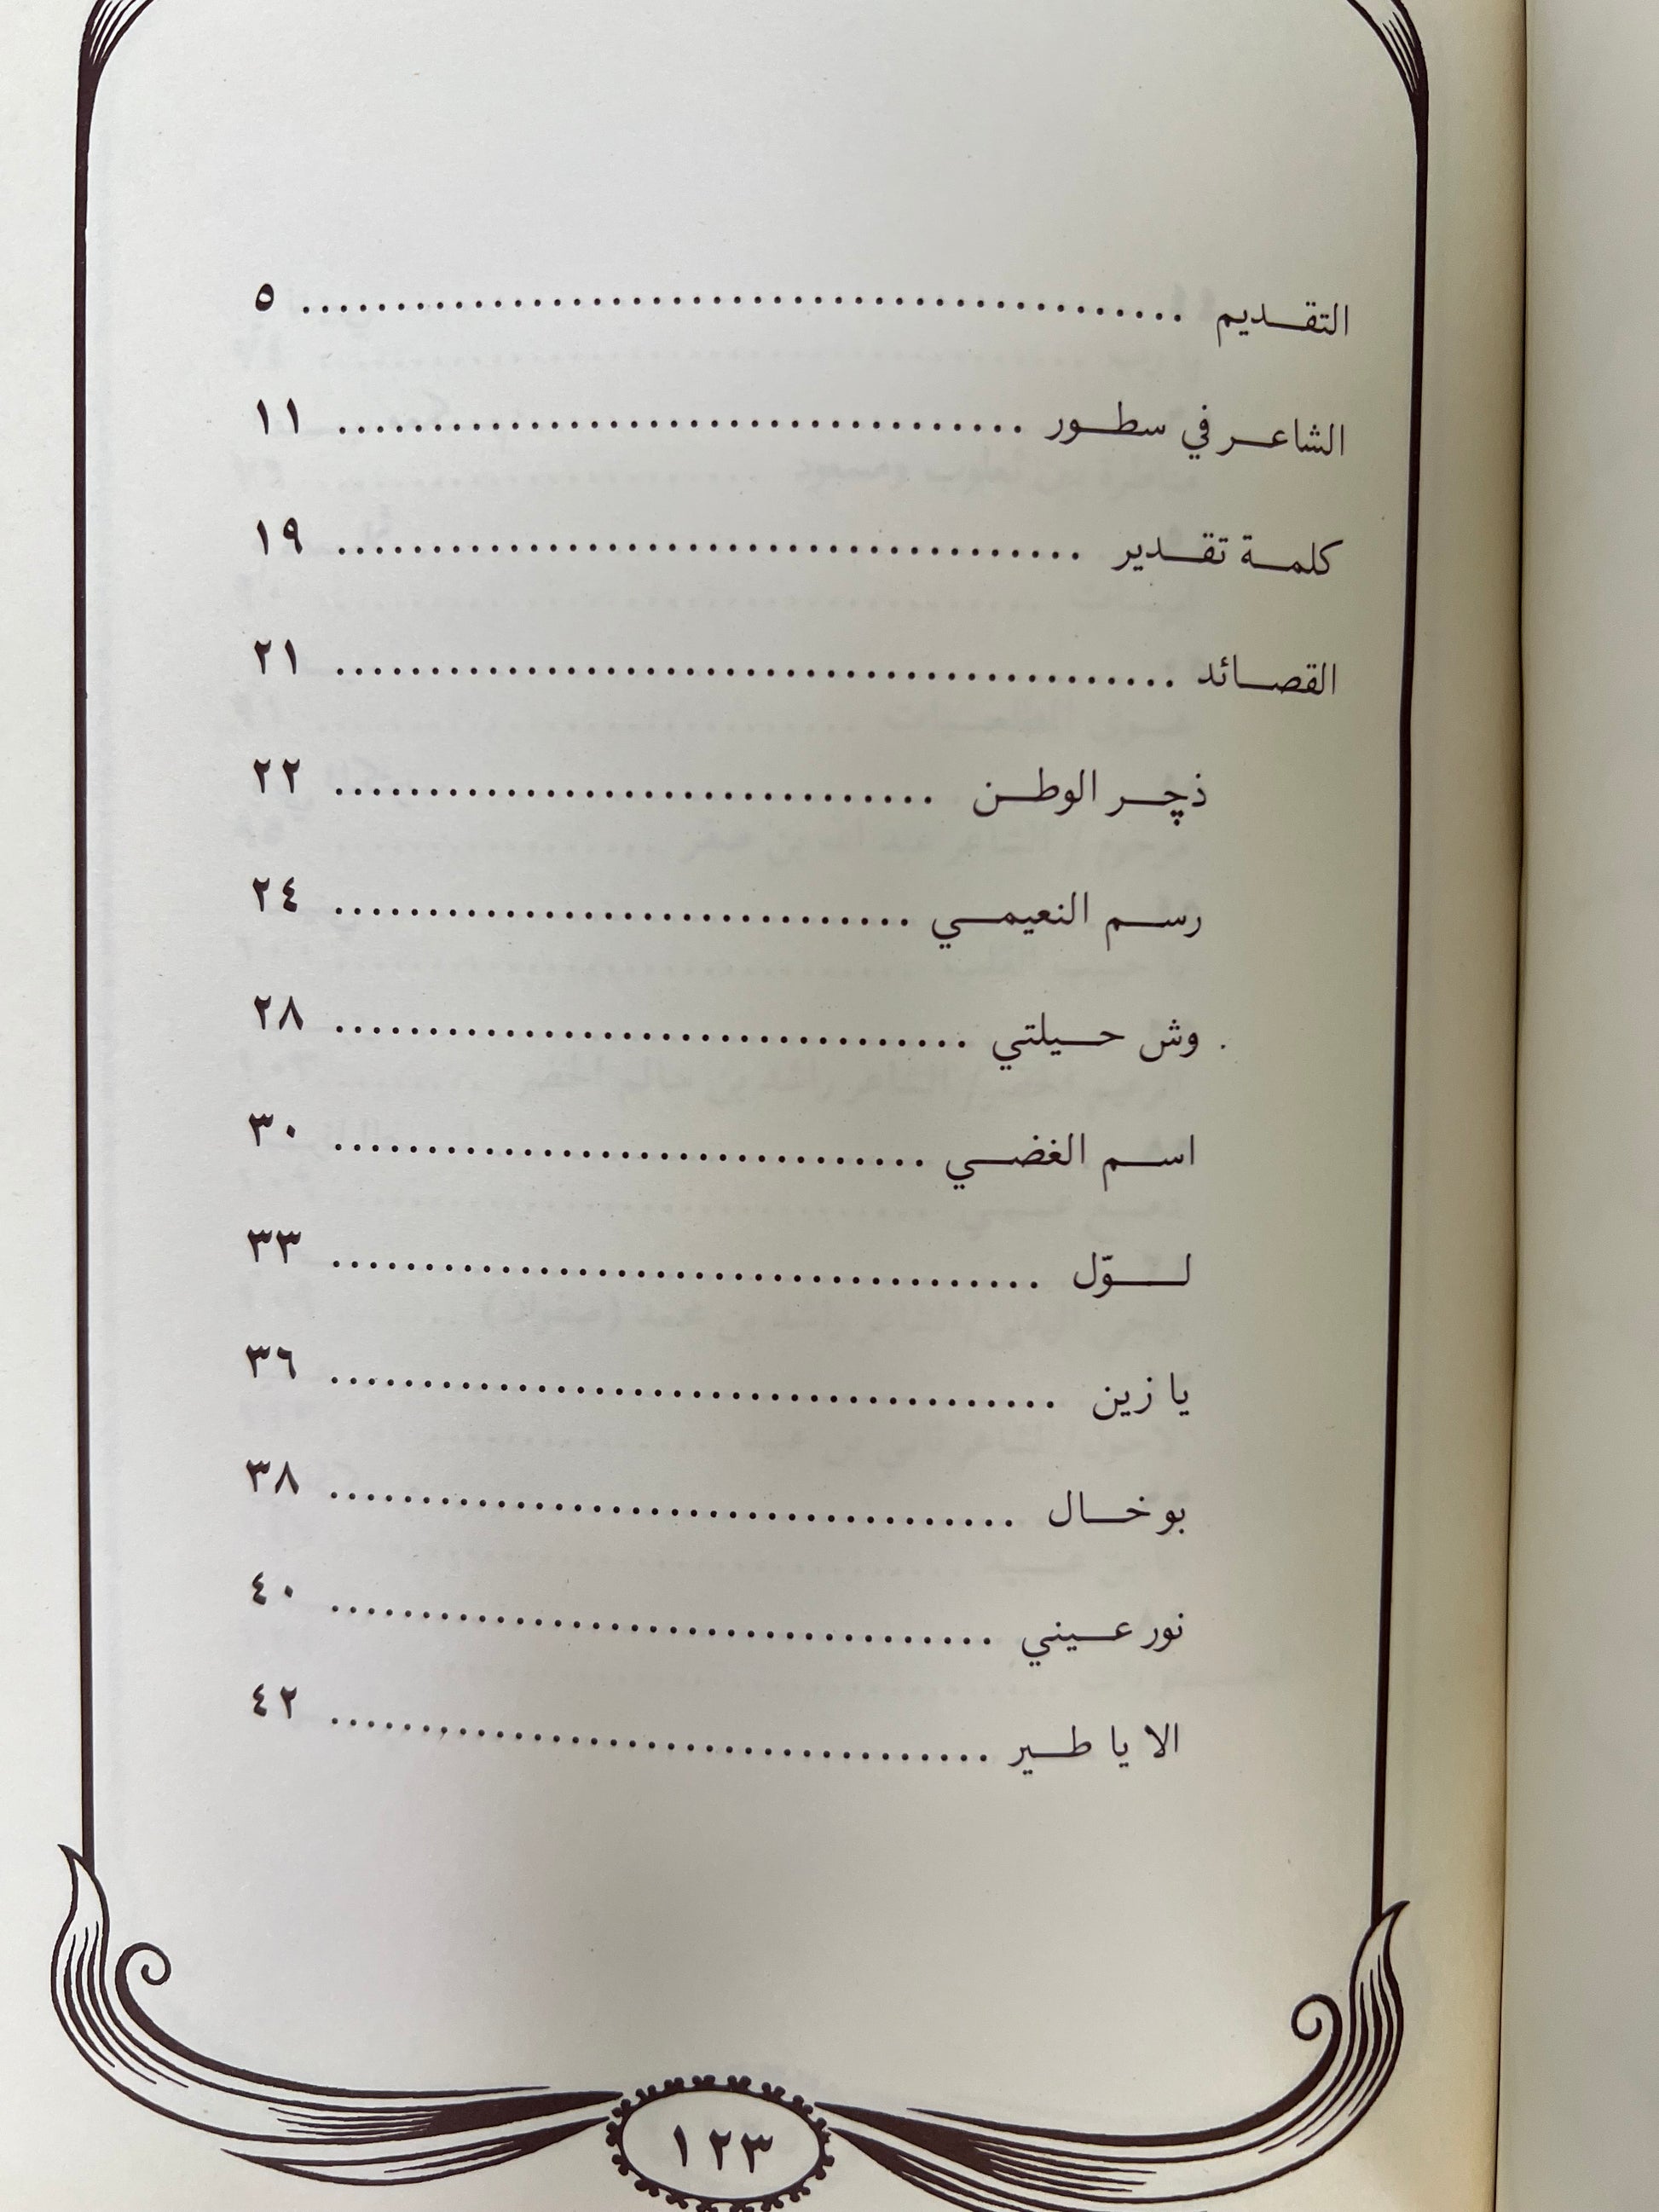 التقديم .................................................. ٥
الشاعر في سطور ...................................... ١١
كلمة تقدير ......................................... ١٩
القصائد .............................................. ٢١
ذچر الوطن ................................. ٢٢
رسم النعيمي ................................ ٢٤
. وش حيلتي ................................... ٢٨
اسم الغضي ................................. ٣٠
لوّل ....................................... ٣٣
يا زين ........................................ ٣٦
بو خال ...................................... ٣٨
نور عيني .................................... ٤٠
الا يا طير .................................... ٤٢
١٢٣